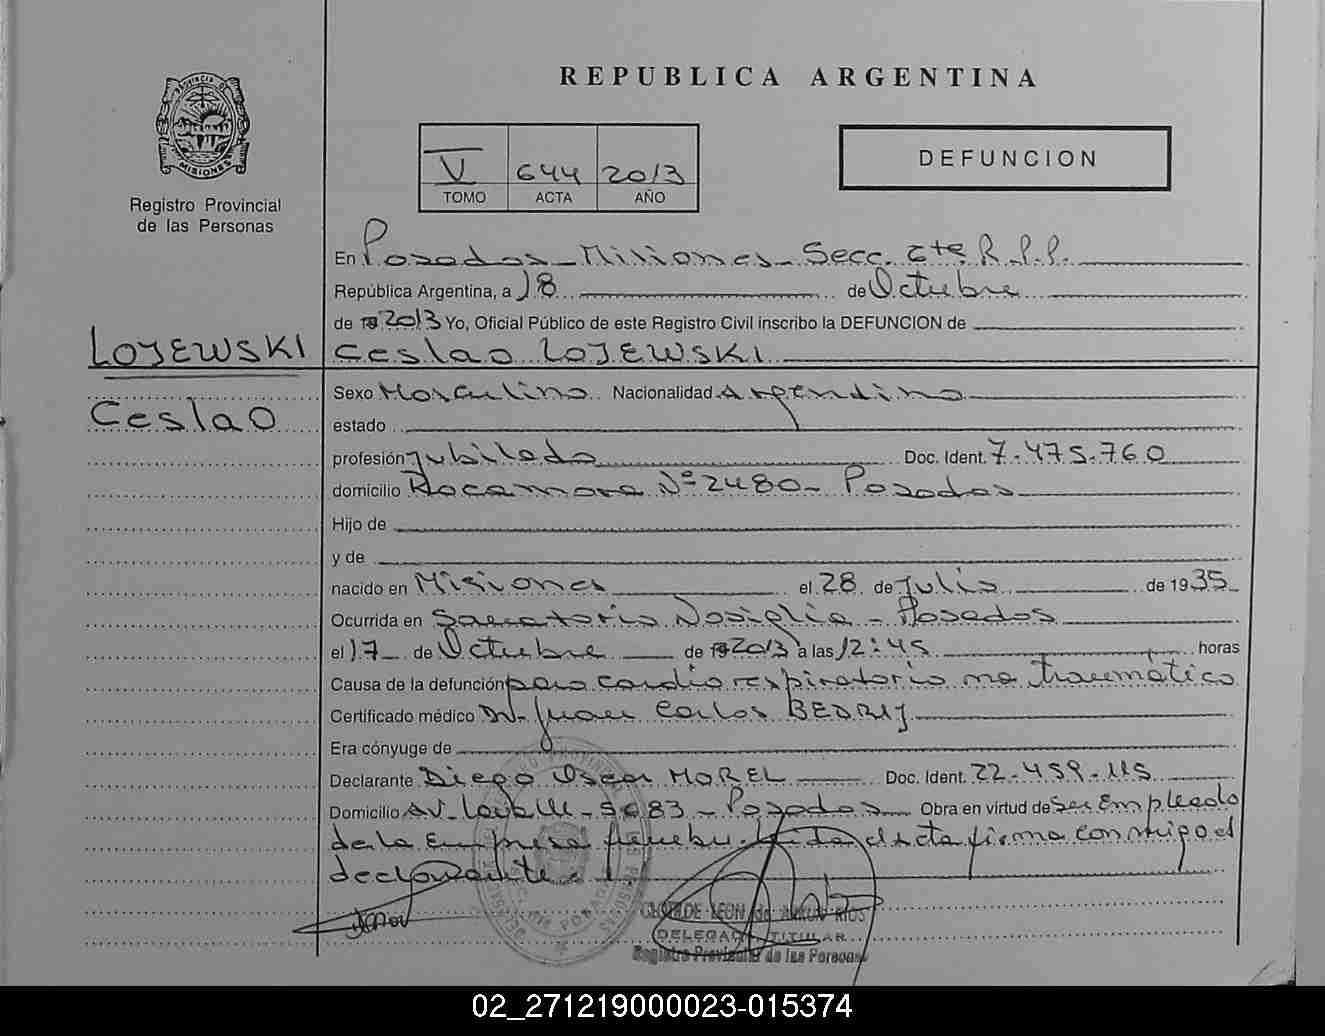 REPUBLICA ARGENTINA
PROVINCIA DE
MISIONES
Registro Provincial
de las Personas
V 644 2013
TOMO ACTA AÑO
DEFUNCION
En Posadas - Misiones - Secc. 6ta. R.P.P.
República Argentina, a 18 de Octubre
de 2013 Yo, Oficial Público de este Registro Civil inscribo la DEFUNCION de
LOJEWSKI
Ceslao LOJEWSKI
Ceslao
Sexo Masculino Nacionalidad Argentino
estado
profesión Jubilado Doc. Ident. 7.475.760
domicilio Rocamora Nº 2480 - Posadas
Hijo de
y de
nacido en Misiones el 28 de Julio de 1935
Ocurrida en Sanatorio Nosiglia - Posadas
el 17 de Octubre de 2013 a las 12:45 horas
Causa de la defunción paro cardiorespiratorio no traumático
Certificado médico Dr. Juan Carlos BEDRIJ
Era cónyuge de
Declarante Diego Oscar MOREL Doc. Ident. 22.459.115
Domicilio Av. 5683 - Posadas Obra en virtud de Ser Empleado
de la Empresa el Acta firma conmigo el
declarante.
DELEGADA TITULAR
Registro Provincial de las Personas
02_271219000023-015374